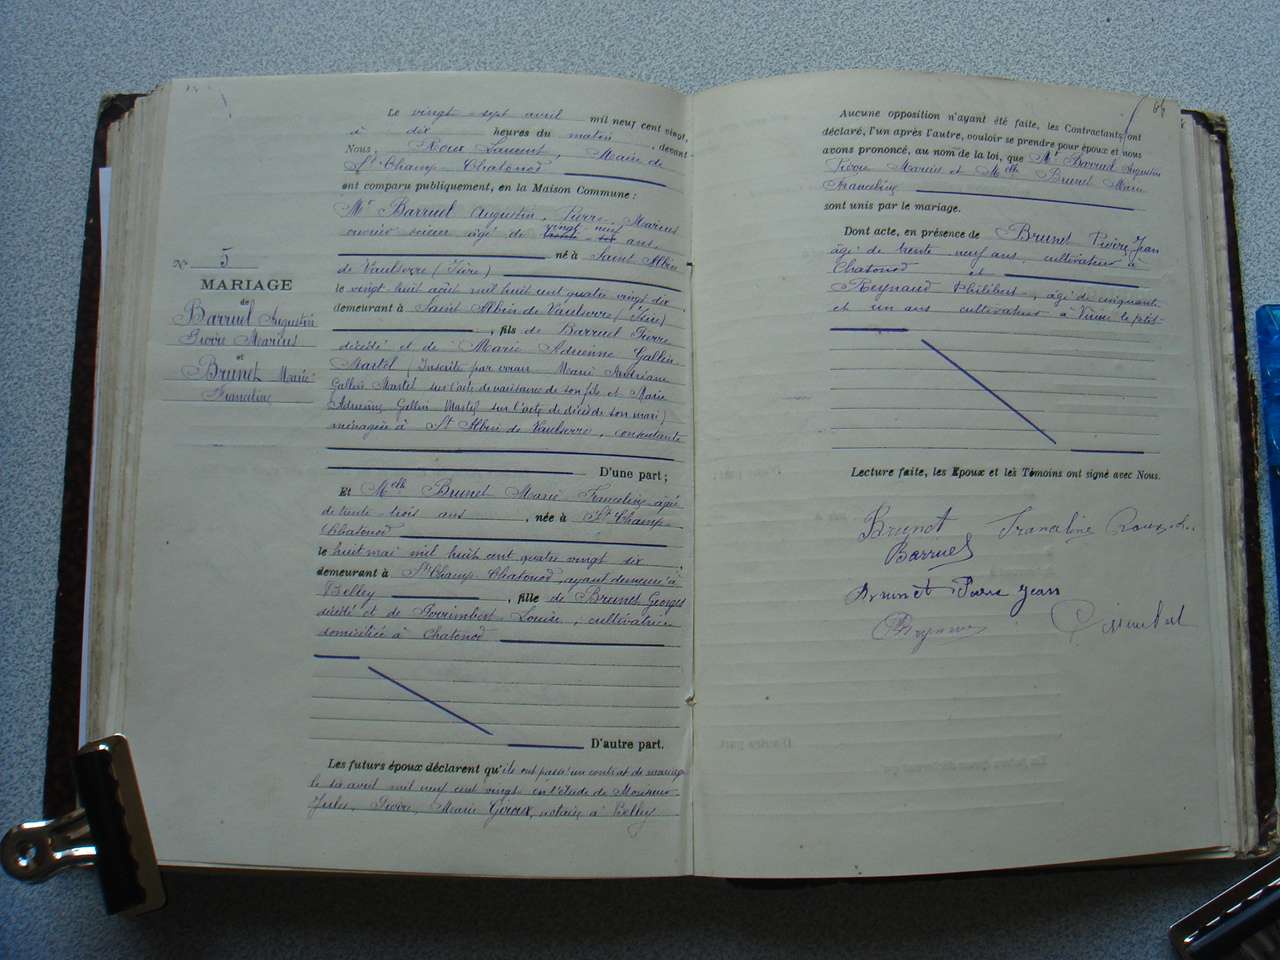 Le vingt-sept avril mil neuf cent vingt,
à dix heures du matin, devant
Nous, Roux Laurent, Maire de
St Champ Chatonod
ont comparu publiquement, en la Maison Commune :
Mr Barruel Augustin, Pierre, Marius
vingt neuf
ouvrier scieur âgé de trente-six ans,
né à Saint Albin
de Vaulserre (Isère)
le vingt-huit août mil huit cent quatre vingt dix
demeurant à Saint Albin de Vaulserre (Isère)
, fils de Barruel Pierre
décédé et de Marie Adrienne Gallin
Martel (Inscrite par erreur Marie Andrienne
Gallin Martel sur l'acte de naissance de son fils et Marie
Adrienne Gallin Martel sur l'acte de décès de son mari)
ménagère à St Albin de Vaulserre, consentante
D'une part ;
Et Melle Brunet Marie Franceline âgée
de trente-trois ans, née à St Champ
Chatonod
le huit mai mil huit cent quatre vingt six
demeurant à St Champ Chatonod, ayant demeuré à
Belley, fille de Brunet Georges
décédé et de Louise, cultivatrice
domiciliée à Chatonod
D'autre part.
Les futurs époux déclarent qu'ils ont passé un contrat de mariage
le avril mil neuf cent vingt en l'étude de Monsieur
Jules, Pierre, Marie Giroux, notaire à Belley
No 5
MARIAGE
de
Barruel Augustin
Pierre Marius
et
Brunet Marie
Franceline
66
Aucune opposition n'ayant été faite, les Contractants ont
déclaré, l'un après l'autre, vouloir se prendre pour époux et nous
avons prononcé, au nom de la loi, que Mr Barruel Augustin
Pierre Marius et Melle Brunet Marie
Franceline
sont unis par le mariage.
Dont acte, en présence de Brunet Pierre Jean
âgé de trente-neuf ans, cultivateur à
Chatonod et
Reynaud Philibert, âgé de cinquante
et un ans cultivateur à Virieu le petit
Lecture faite, les Epoux et les Témoins ont signé avec Nous.
Brunet Franceline
Barruel
Brunet Pierre Jean
Reynaud